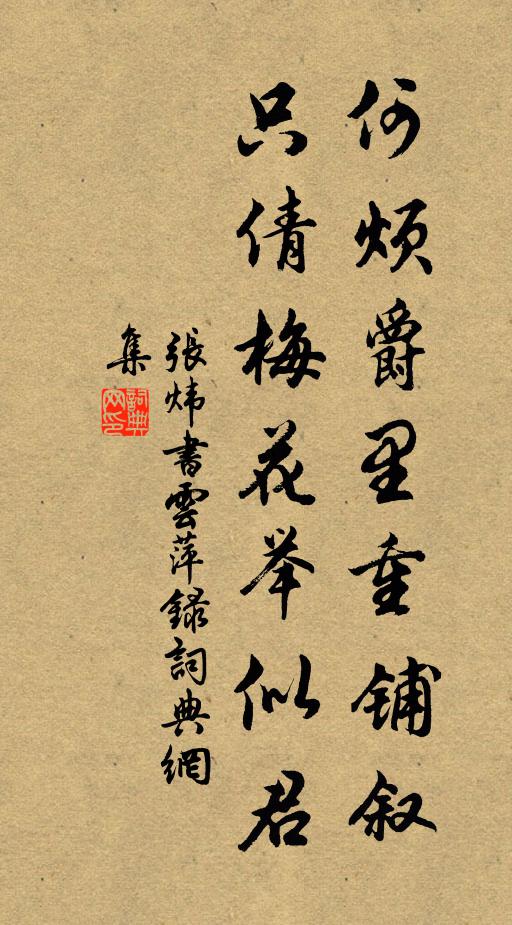 何烦爵里重铺叙
只倩梅花举似君
張炜書雲萍録詞典網
集
詞典
网印